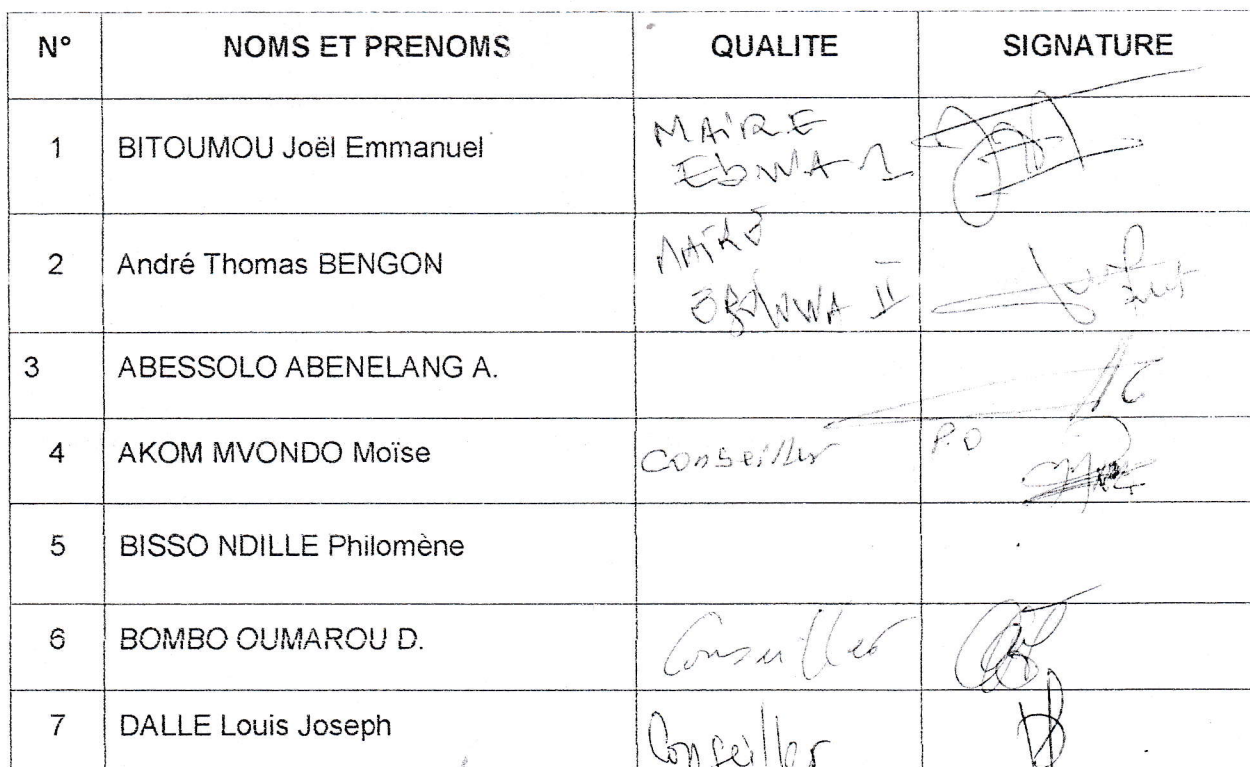 N° NOMS ET PRENOMS QUALITE SIGNATURE
1 BITOUMOU Joël Emmanuel MAIRE
EbWA 1
2 André Thomas BENGON MAIRE
II
3 ABESSOLO ABENELANG A.
4 AKOM MVONDO Moïse Conseiller P.O
5 BISSO NDILLE Philomène
6 BOMBO OUMAROU D. Conseiller
7 DALLE Louis Joseph Conseiller